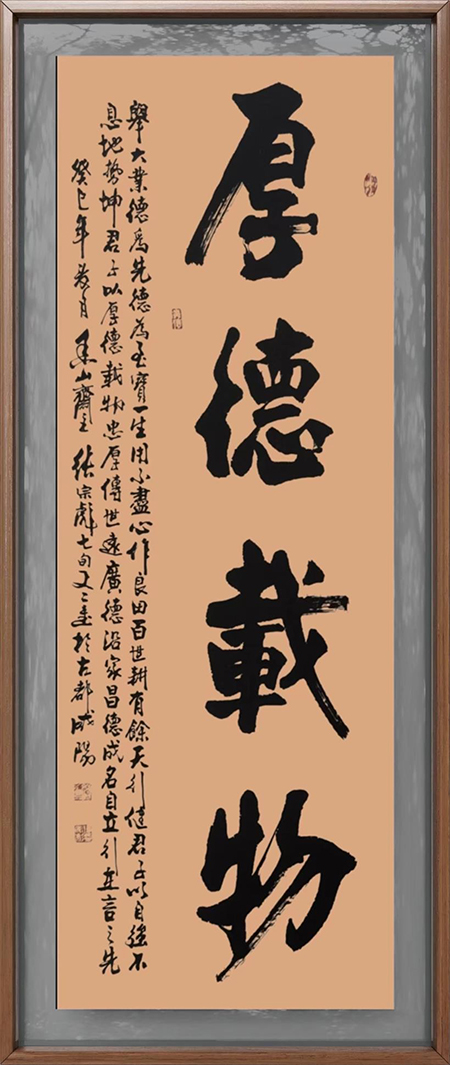 厚德載物
舉大業德為先德為至寶一生用不盡心作良田百世耕有餘天行健君子以自強不
息地勢坤君子以厚德載物忠厚傳世遠廣德沿家昌德成名自立行在言之先
癸巳年 月 山齋主張宗彪七旬又三書於古都咸陽